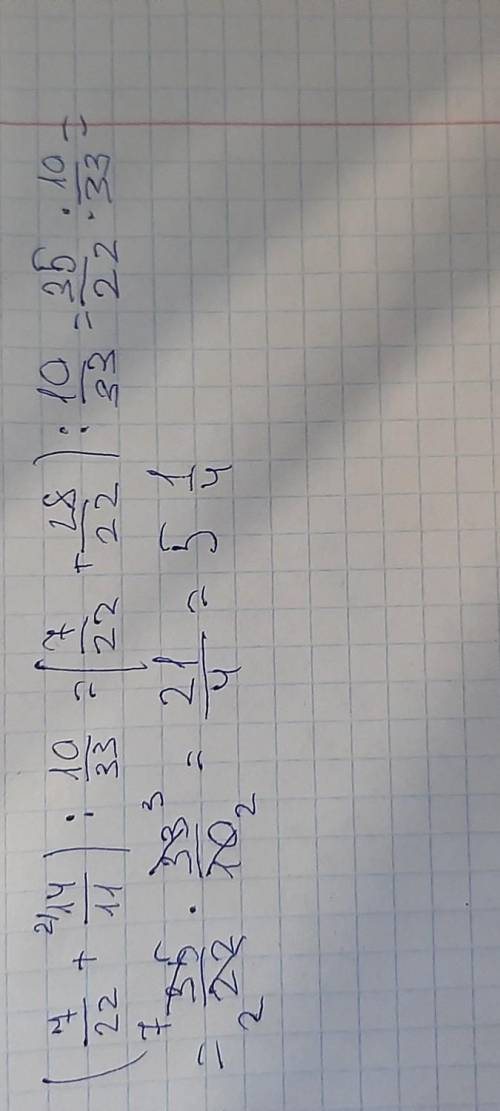 (7/22 + ²⁾14/11) : 10/33 = (7/22 + 28/22) : 10/33 = 35/22 : 10/33 =
= ⁷35/22₂ · 33³/10₂ = 21/4 = 5 1/4